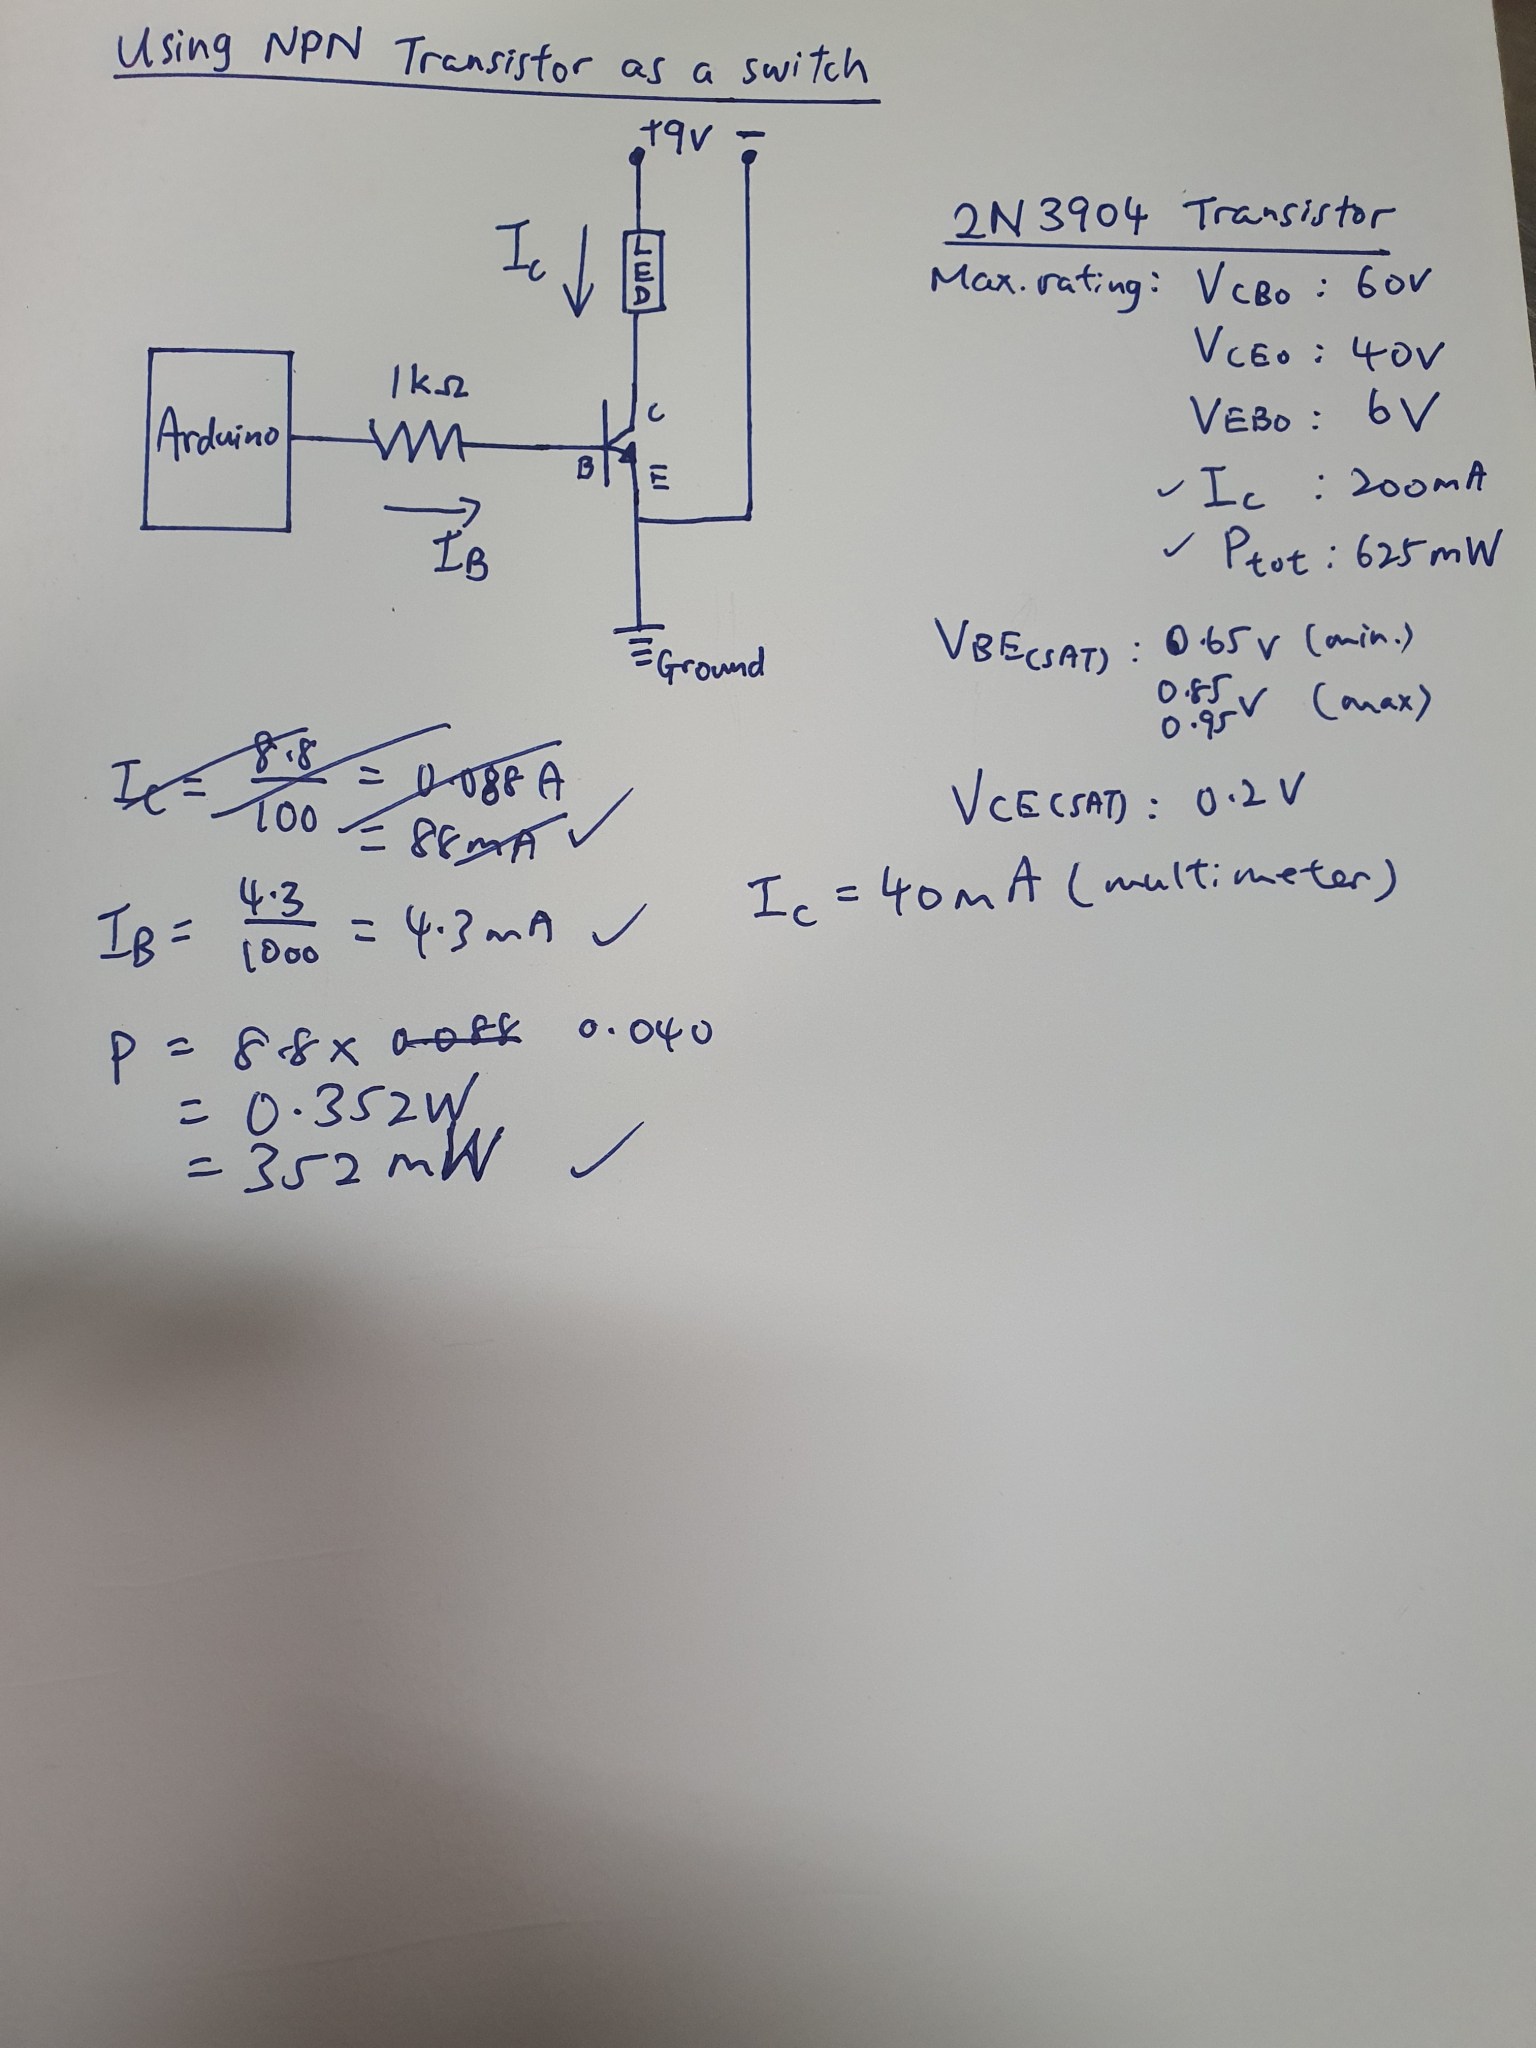 Using NPN Transistor as a switch
+9V -
IC
LED
1kΩ
Arduino
C
B
E
IB
Ground
2N3904 Transistor
Max. rating: VCBO : 60V
VCEO : 40V
VEBO : 6V
✓ IC : 200mA
✓ Ptot : 625mW
VBE(SAT) : 0.65V (min.)
0.85
0.95 V (max)
VCE(SAT) : 0.2V
IC = 40mA (multimeter)
IC = 8.8/100 = 0.088A
= 88mA ✓
IB = 4.3/1000 = 4.3mA ✓
P = 8.8x 0.088 0.040
= 0.352W
= 352mW ✓